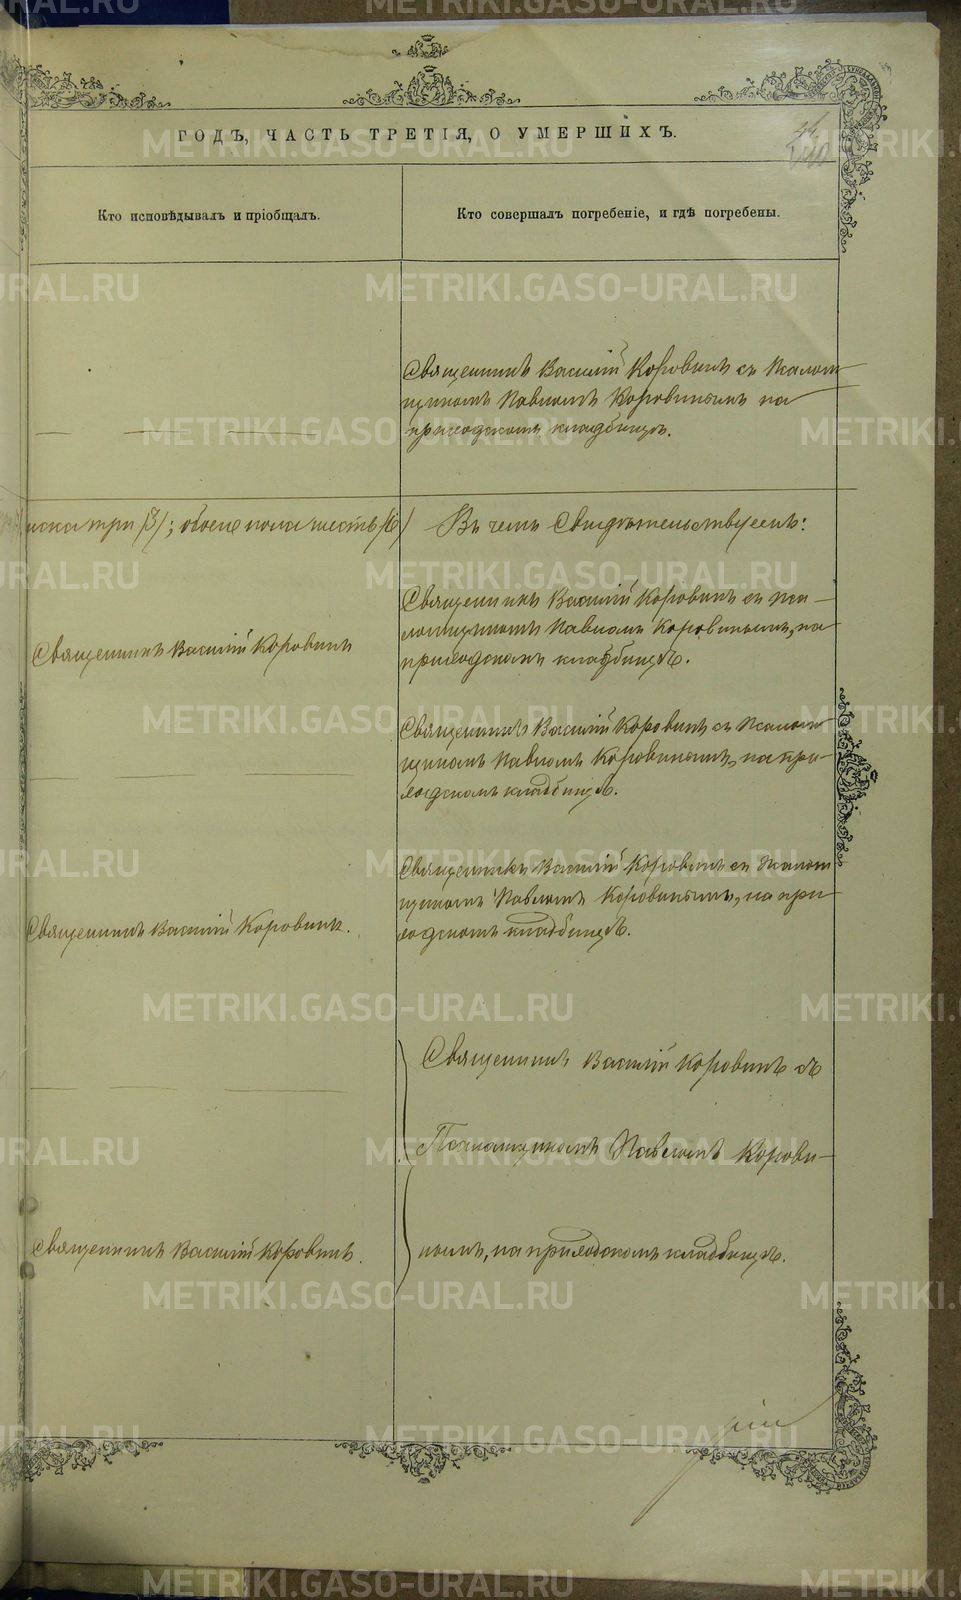 ГОДЪ, ЧАСТЬ ТРЕТІЯ, О УМЕРШИХЪ.
Кто исповѣдывалъ и пріобщалъ.
Кто совершалъ погребеніе, и гдѣ погребены.
Священникъ Василій Коровинъ съ Псалом
щикомъ Павломъ Коровинымъ на
приходскомъ кладбищѣ.
три /3/; обоего пола шесть /6/
Въ чемъ Свидѣтельствуемъ:
Священникъ Василій Коровинъ
Священникъ Василій Коровинъ съ Пса-
ломщикомъ Павломъ Коровинымъ, на
приходскомъ кладбищѣ.
Священникъ Василій Коровинъ съ Псалом
щикомъ Павломъ Коровинымъ, на при-
ходскомъ кладбищѣ.
Священникъ Василій Коровинъ.
Священникъ Василій Коровинъ съ Псалом
щикомъ Павломъ Коровинымъ, на при
ходскомъ кладбищѣ.
Священникъ Василій Коровинъ съ
Псаломщикомъ Павломъ Корови-
Священникъ Василій Коровинъ.
нымъ, на приходскомъ кладбищѣ.
METRIKI.GASO-URAL.RU